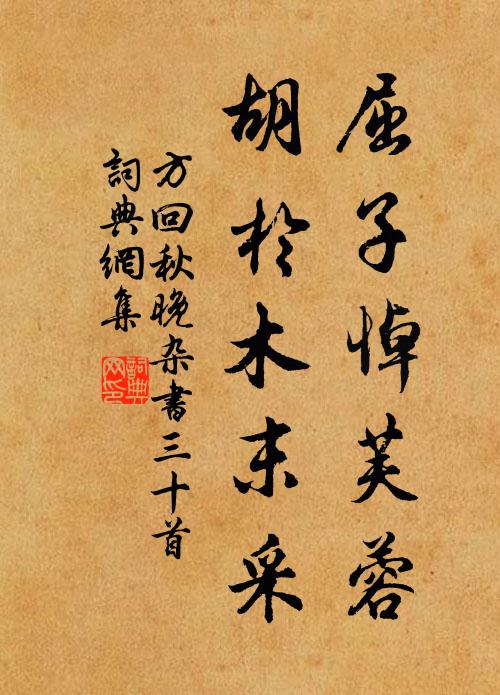 屈子悼芙蓉
胡於木末采
方回秋晚杂書三十首
詞典網集
詞典網印